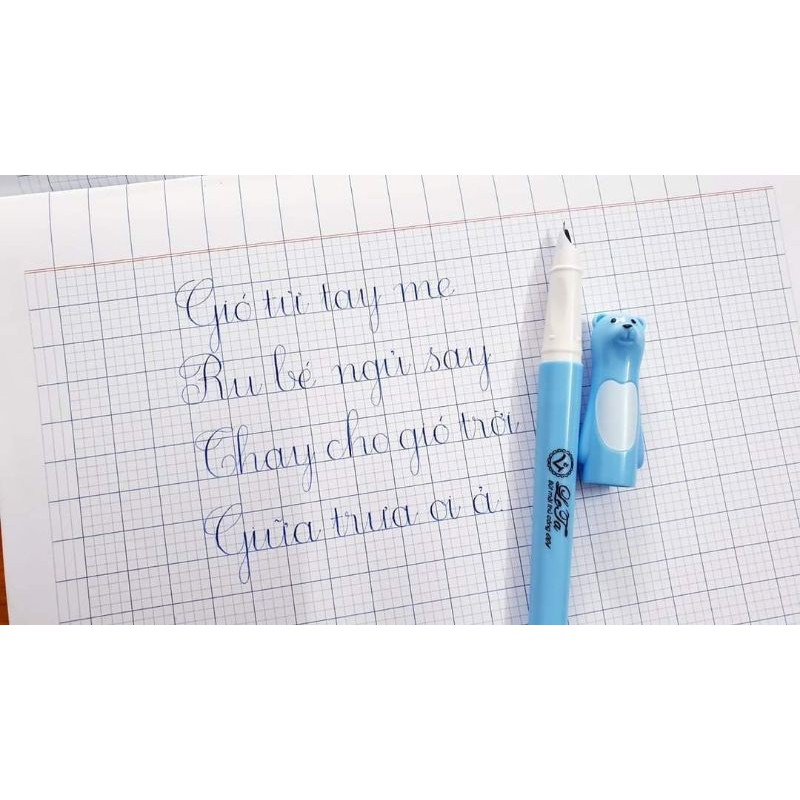 Gió từ tay mẹ
Ru bé ngủ say
Thay cho gió trời
Giữa trưa oi ả
Bút mài thủ công